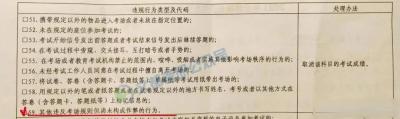 违规行为类型及代码 处理办法
□51. 携带规定以外的物品进入考场或者未放在指定位置的;
□52. 未在规定的座位参加考试的;
□53. 考试开始信号发出前答题或者考试结束信号发出后继续答题的;
□54. 在考试过程中旁窥、交头接耳、互打暗号或者手势的;
□55. 在考场或者教育考试机构禁止的范围内，喧哗、吸烟或者实施其他影响考场秩序的行为的;
□56. 未经考试工作人员同意在考试过程中擅自离开考场的;
取消该科目的考试成绩。
□57. 将试卷、答卷（含答题卡、答题纸等）、草稿纸等考试用纸带出考场的;
□58. 用规定以外的笔或者纸答题或者在试卷规定以外的地方书写姓名、考号或者以其他方式在
答卷（含答题卡、答题纸等）上标记信息的;
69. 其他违反考场规则但尚未构成作弊的行为。